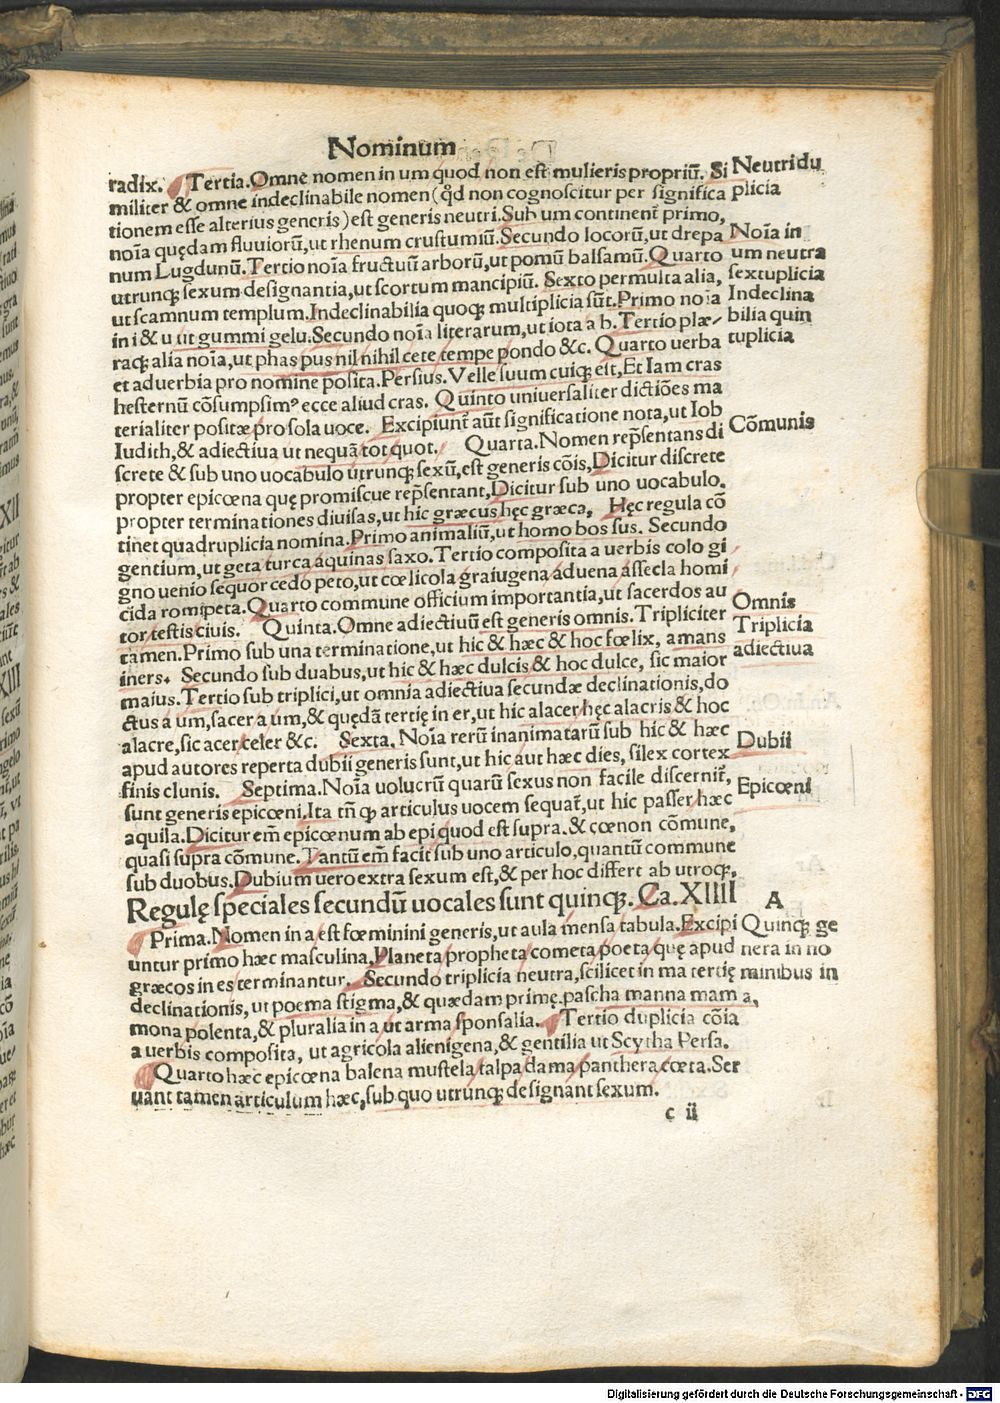 Nominum
radix. Tertia. Omne nomen in um quod non est mulieris propriũ. Si
militer & omne indeclinabile nomen (q̃d non cognoscitur per significa
tionem esse alterius generis) est generis neutri. Sub um continent̃ primo,
noĩa quędam fluuiorũ, ut rhenum crustumiũ. Secundo locorũ, ut drepa
num Lugdunũ. Tertio noĩa fructuũ arborũ, ut pomũ balsamũ. Quarto
utrunq; sexum designantia, ut scortum mancipiũ. Sexto permulta alia,
ut scamnum templum. Indeclinabilia quoq; multiplicia sũt. Primo noĩa
in i & u ut gummi gelu. Secundo noĩa literarum, ut iota a b. Tertio plæ-
raq; alia noĩa, ut phas pus nil nihil cete tempe pondo &c. Quarto uerba
et aduerbia pro nomine posita. Persius. Velle suum cuiq; est, Et Iam cras
hesternũ cõsumpsimꝰ ecce aliud cras. Quinto uniuersaliter dictiões ma
terialiter positæ pro sola uoce. Excipiunt̃ aũt significatione nota, ut Iob
Iudith, & adiectiua ut nequã tot quot. Quarta. Nomen rep̃sentans di
screte & sub uno uocabulo utrunq; sexũ, est generis cõis, Dicitur discrete
propter epicœna quę promiscue rep̃sentant, Dicitur sub uno uocabulo.
propter terminationes diuisas, ut hic græcus hęc græca. Hęc regula cõ
tinet quadruplicia nomina. Primo animaliũ, ut homo bos sus. Secundo
gentium, ut geta turca aquinas saxo. Tertio composita a uerbis colo gi
gno uenio sequor cedo peto, ut cœlicola graiugena aduena assecla homi
cida romipeta. Quarto commune officium importantia, ut sacerdos au
tor testis ciuis. Quinta. Omne adiectiuũ est generis omnis. Tripliciter
tamen. Primo sub una terminatione, ut hic & hæc & hoc fœlix, amans
iners. Secundo sub duabus, ut hic & hæc dulcis & hoc dulce, sic maior
maius. Tertio sub triplici, ut omnia adiectiua secundæ declinationis, do
ctus a um, sacer a um, & quędã tertię in er, ut hic alacer hęc alacris & hoc
alacre, sic acer celer &c. Sexta. Noĩa rerũ inanimatarũ sub hic & hæc
apud autores reperta dubii generis sunt, ut hic aut hæc dies, silex cortex
finis clunis. Septima. Noĩa uolucrũ quarũ sexus non facile discernit̃,
sunt generis epicœni. Ita tñ q̃ articulus uocem sequat̃, ut hic passer hæc
aquila. Dicitur em̃ epicœnum ab epi quod est supra. & cœnon cõmune,
quasi supra cõmune. Tantũ em̃ facit sub uno articulo, quantũ commune
sub duobus. Dubium uero extra sexum est, & per hoc differt ab utroq;.
Regulę speciales secundũ uocales sunt quinq;. Ca. XIIII
Prima. Nomen in a est fœminini generis, ut aula mensa tabula. Excipi
untur primo hæc masculina. Planeta propheta cometa poeta, quę apud
græcos in es terminantur. Secundo triplicia neutra, scilicet in ma tertię
declinationis, ut poema stigma, & quædam primę. pascha manna mam a,
mona polenta, & pluralia in a ut arma sponsalia. Tertio duplicia cõia
a uerbis composita, ut agricola alienigena, & gentilia ut Scytha Persa.
Quarto hæc epicœna balena mustela talpa dama panthera cœta. Ser
uant tamen articulum hæc, sub quo utrunq; designant sexum.
c ii
Neutri du
plicia
Noĩa in
um neutra
sextuplicia
Indeclina
bilia quin
tuplicia
Cõmunis
Omnis
Triplicia
adiectiua
Dubii
Epicœni
A
Quinq; ge
nera in no
minibus in
Digitalisierung gefördert durch die Deutsche Forschungsgemeinschaft - DFG